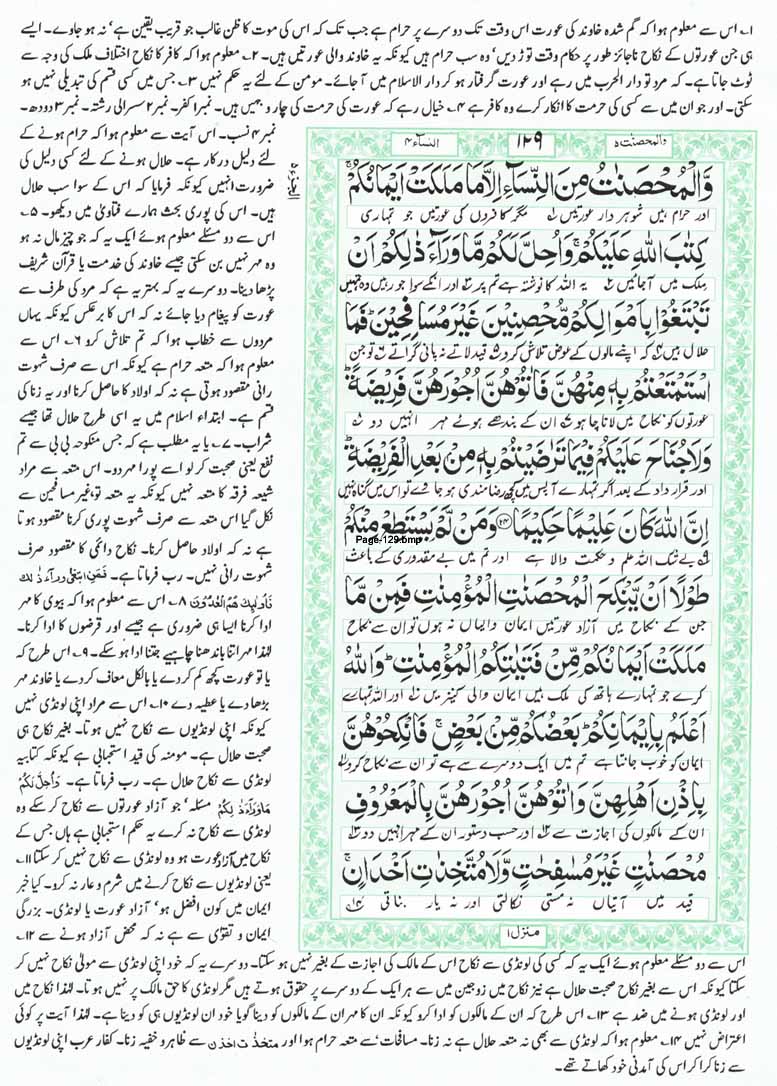 ۱؎ اس سے معلوم ہوا کہ گم شدہ خاوند کی عورت اس وقت تک دوسرے پر حرام ہے جب تک کہ اس کی موت کا ظن غالب جو قریب یقین ہے‘ نہ ہو جاوے۔ ایسے
ہی جن عورتوں کے نکاح ناجائز طور پر حکام وقت توڑ دیں‘ وہ سب حرام ہیں کیونکہ یہ خاوند والی عورتیں ہیں۔ ۲؎ معلوم ہوا کہ کافر کا نکاح اختلاف ملک کی وجہ سے
ٹوٹ جاتا ہے۔ کہ مرد تو دار الحرب میں رہے اور عورت گرفتار ہو کر دار الاسلام میں آ جائے۔ مومن کے لئے یہ حکم نہیں ۳؎ جس میں کسی قسم کی تبدیلی نہیں ہو
سکتی۔ اور جو ان میں سے کسی کی حرمت کا انکار کرے وہ کافر ہے ۴؎ خیال رہے کہ عورت کی حرمت کی چار وجہیں ہیں۔ نمبر۱ کفر۔ نمبر ۲ سسرالی رشتہ۔ نمبر ۳ دودھ۔
والمحصنٰت ۵
۱۲۹
النساء ۴
وَّالْمُحْصَنٰتُ مِنَ النِّسَآءِ اِلَّا مَا مَلَكَتْ اَيْمَانُكُمْ ۚ
اور حرام ہیں شوہر دار عورتیں ۱؎ مگر کافروں کی عورتیں جو تمہاری
كِتٰبَ اللّٰهِ عَلَيْكُمْ ۚ وَاُحِلَّ لَكُمْ مَّا وَرَآءَ ذٰلِكُمْ اَنْ
ملک میں آ جائیں ۲؎ یہ اللہ کا نوشتہ ہے تم پر ۳؎ اور انکے سوا جو رہیں وہ تمہیں
تَبْتَغُوْا بِاَمْوَالِكُمْ مُّحْصِنِيْنَ غَيْرَ مُسَافِحِيْنَ ؕ فَمَا
حلال ہیں ۴؎ کہ اپنے مالوں کے عوض تلاش کرو ۵؎ قید لاتے نہ پانی گراتے ۶؎ تو جن
اسْتَمْتَعْتُمْ بِهٖ مِنْهُنَّ فَاٰتُوْهُنَّ اُجُوْرَهُنَّ فَرِيْضَةً ؕ
عورتوں کو نکاح میں لانا چاہو ۷؎ ان کے بندھے ہوئے مہر انہیں دو ۸؎
وَلَا جُنَاحَ عَلَيْكُمْ فِيْمَا تَرٰضَيْتُمْ بِهٖ مِنْۢ بَعْدِ الْفَرِيْضَةِ ؕ
اور قرار داد کے بعد اگر تمہارے آپس میں کچھ رضامندی ہو جائے تو اس میں گناہ نہیں
اِنَّ اللّٰهَ كَانَ عَلِيْمًا حَكِيْمًا ﴿۲۴﴾ وَمَنْ لَّمْ يَسْتَطِعْ مِنْكُمْ
Page-129.bmp
۹؎ بے شک اللہ علم و حکمت والا ہے اور تم میں بے مقدوری کے باعث
طَوْلًا اَنْ يَّنْكِحَ الْمُحْصَنٰتِ الْمُؤْمِنٰتِ فَمِنْ مَّا
جن کے نکاح میں آزاد عورتیں ایمان والیاں نہ ہوں تو ان سے نکاح
مَلَكَتْ اَيْمَانُكُمْ مِّنْ فَتَيٰتِكُمُ الْمُؤْمِنٰتِ ؕ وَاللّٰهُ
کرے جو تمہارے ہاتھ کی ملک ہیں ایمان والی کنیزیں ۱۰؎ اور اللہ تمہارے
اَعْلَمُ بِاِيْمَانِكُمْ ؕ بَعْضُكُمْ مِّنْۢ بَعْضٍ ۚ فَانْكِحُوْهُنَّ
ایمان کو خوب جانتا ہے تم میں ایک دوسرے سے ہے تو ان سے نکاح کرو ۱۱؎
بِاِذْنِ اَهْلِهِنَّ وَاٰتُوْهُنَّ اُجُوْرَهُنَّ بِالْمَعْرُوْفِ
ان کے مالکوں کی اجازت سے ۱۲؎ اور حسب دستور ان کے مہر انہیں دو ۱۳؎
مُحْصَنٰتٍ غَيْرَ مُسٰفِحٰتٍ وَّلَا مُتَّخِذٰتِ اَخْدَانٍ ۚ
قید میں آتیاں نہ مستی نکالتی اور نہ یار بناتی ۱۴؎
منزل ۱
نمبر ۴ نسب۔ اس آیت سے معلوم ہوا کہ حرام ہونے کے
لئے دلیل درکار ہے۔ حلال ہونے کے لئے کسی دلیل کی
ضرورت نہیں کیونکہ فرمایا کہ اس کے سوا سب حلال
ہیں۔ اس کی پوری بحث ہمارے فتاویٰ میں دیکھو۔ ۵؎
اس سے دو مسئلے معلوم ہوئے ایک یہ کہ جو چیز مال نہ ہو
وہ مہر نہیں بن سکتی جیسے خاوند کی خدمت یا قرآن شریف
پڑھا دینا۔ دوسرے یہ کہ بہتر یہ ہے کہ مرد کی طرف سے
عورت کو پیغام دیا جائے نہ کہ اس کا برعکس کیونکہ یہاں
مردوں سے خطاب ہوا کہ تم تلاش کرو ۶؎ اس سے
معلوم ہوا کہ متعہ حرام ہے کیونکہ اس سے صرف شہوت
رانی مقصود ہوتی ہے نہ کہ اولاد کا حاصل کرنا اور یہ زنا کی
قسم ہے۔ ابتداء اسلام میں یہ اسی طرح حلال تھا جیسے
شراب۔ ۷؎ یا یہ مطلب ہے کہ جس منکوحہ بی بی سے تم
نفع یعنی صحبت کر لو اسے پورا مہر دو۔ اس متعہ سے مراد
شیعہ فرقہ کا متعہ نہیں کیونکہ یہ متعہ تو غیر مسافحین سے
نکل گیا اس متعہ سے صرف شہوت پوری کرنا مقصود ہوتا
ہے نہ کہ اولاد حاصل کرنا۔ نکاح دائمی کا مقصود صرف
شہوت رانی نہیں۔ رب فرماتا ہے۔ فَمَنِ ابْتَغٰى وَرَآءَ ذٰلِكَ
فَاُولٰٓئِكَ هُمُ الْعٰدُوْنَ ۸؎ اس سے معلوم ہوا کہ بیوی کا مہر
ادا کرنا ایسا ہی ضروری ہے جیسے اور قرضوں کا ادا کرنا۔
لہٰذا مہر اتنا باندھنا چاہیے جتنا ادا ہو سکے۔ ۹؎ اس طرح کہ
یا تو عورت کچھ کم کر دے یا بالکل معاف کر دے یا خاوند مہر
بڑھا دے یا عطیہ دے ۱۰؎ اس سے مراد اپنی لونڈی نہیں
کیونکہ اپنی لونڈیوں سے نکاح نہیں ہوتا۔ بغیر نکاح ہی
صحبت حلال ہے۔ مومنہ کی قید استحبابی ہے کیونکہ کتابیہ
لونڈی سے نکاح حلال ہے۔ رب فرماتا ہے۔ وَاُحِلَّ لَكُمْ
مَّا وَرَآءَ ذٰلِكُمْ مسئلہ‘ جو آزاد عورتوں سے نکاح کر سکے وہ
لونڈی سے نکاح نہ کرے یہ حکم استحبابی ہے ہاں جس کے
نکاح میں آزاد عورت ہو وہ لونڈی سے نکاح نہیں کر سکتا ۱۱؎
یعنی لونڈیوں سے نکاح کرنے میں شرم و عار نہ کرو۔ کیا خبر
ایمان میں کون افضل ہو‘ آزاد عورت یا لونڈی۔ بزرگی
ایمان و تقوٰی سے ہے نہ کہ محض آزاد ہونے سے ۱۲؎
اس سے دو مسئلے معلوم ہوئے ایک یہ کہ کسی کی لونڈی سے نکاح اس کے مالک کی اجازت کے بغیر نہیں ہو سکتا۔ دوسرے یہ کہ خود اپنی لونڈی سے مولیٰ نکاح نہیں کر
سکتا کیونکہ اس سے بغیر نکاح صحبت حلال ہے نیز نکاح میں زوجین میں سے ہر ایک کے دوسرے پر حقوق ہوتے ہیں مگر لونڈی کا حق مالک پر نہیں ہوتا۔ لہٰذا نکاح میں
اور لونڈی ہونے میں ضد ہے ۱۳؎ اس طرح کہ ان کے مالکوں کو ادا کرو کیونکہ ان کا مہر ان کے مالکوں کو دینا گویا خود ان لونڈیوں ہی کو دینا ہے۔ لہٰذا آیت پر کوئی
اعتراض نہیں ۱۴؎ معلوم ہوا کہ لونڈی سے بھی نہ متعہ حلال ہے نہ زنا۔ مسافحات‘ سے متعہ حرام ہوا اور متخذٰت اخدان سے ظاہر و خفیہ زنا۔ کفار عرب اپنی لونڈیوں
سے زنا کرا کر اس کی آمدنی خود کھاتے تھے۔